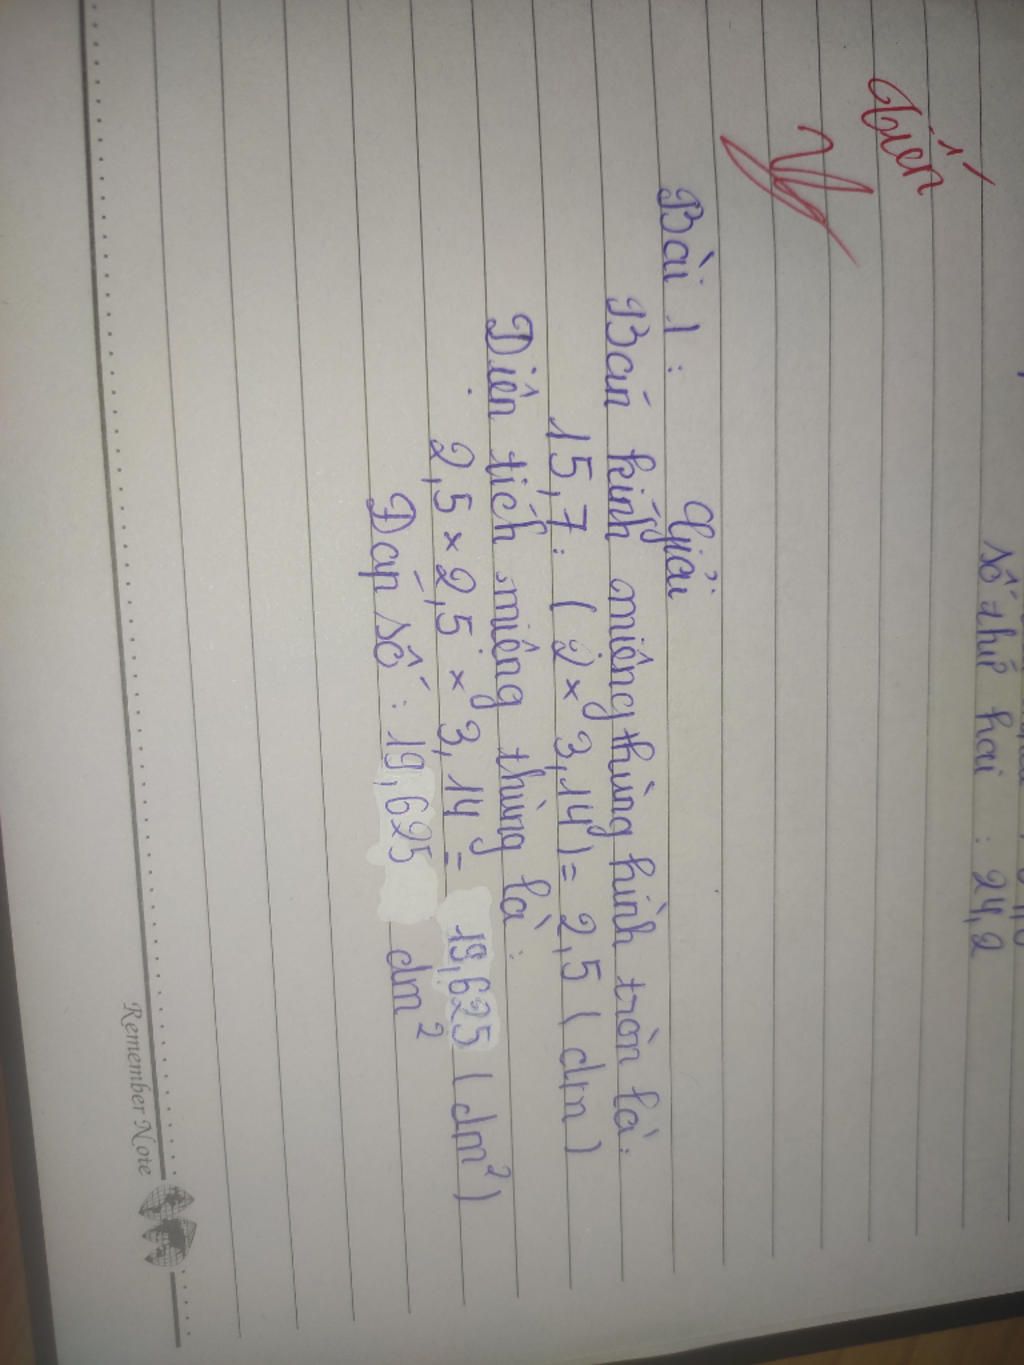 số thứ hai : 24,2
Tiến
Bài 1 : Giải
Bán kính miêng thùng hình tròn là:
15,7 : ( 2 × 3,14 ) = 2,5 ( dm )
Diện tích miêng thùng là :
2,5 × 2,5 × 3,14 = 19,625 ( dm² )
Đáp số : 19,625 dm²
Remember Note